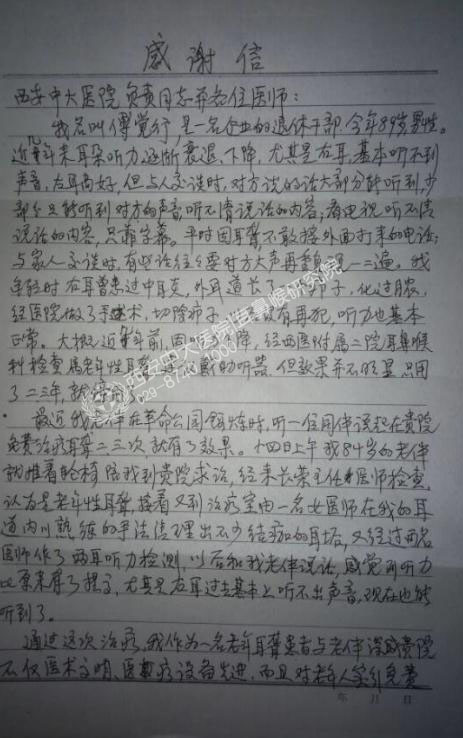 感谢信
西安中大医院负责同志并各位医师：
我名叫傅觉行，是一名企业的退休干部，今年89岁，男性。
近几年来耳朵听力逐渐衰退、下降，尤其是右耳，基本听不到
声音，左耳尚好，但与人交谈时，对方说的话大部分能听到，少
部分只能听到对方的声音，听不清说话的内容；看电视听不清
说话的内容，只靠字幕。平时因耳聋不敢接外面打来的电话；
与家人交谈时，有些话往往要对方大声再重复一二遍。我
年轻时右耳曾患过中耳炎，外耳道长了个疖子，化过脓，
经医院做了手术，切除疖子，后没有再犯，听力也基本
正常。大概近年前，因听力下降，经西医附属二院耳鼻喉
科检查属老年性耳聋，建议戴助听器，但效果并不明显，只用
了二三年，就停用了。
最近我老伴在革命公园锻炼时，听一位同伴说起在贵院
免费治疗耳聋二三次，就有了效果。十四日上午我84岁的老伴
就推着轮椅陪我到贵院求诊，经来长荣主任医师检查，
认为是老年性耳聋，接着又到治疗室由一名女医师在我的耳
道内以熟练的手法清理出不少结痂的耳垢，又经过两名
医师作了两耳听力检测，以后和我老伴说话，感觉到听力
比原来有了提高，尤其是右耳过去基本上听不出声音，现在也能
听到了。
通过这次治疗，我作为一名老年耳聋患者与老伴深感贵院
不仅医术高明、医疗设备先进，而且对老年人实行免费
年 月 日